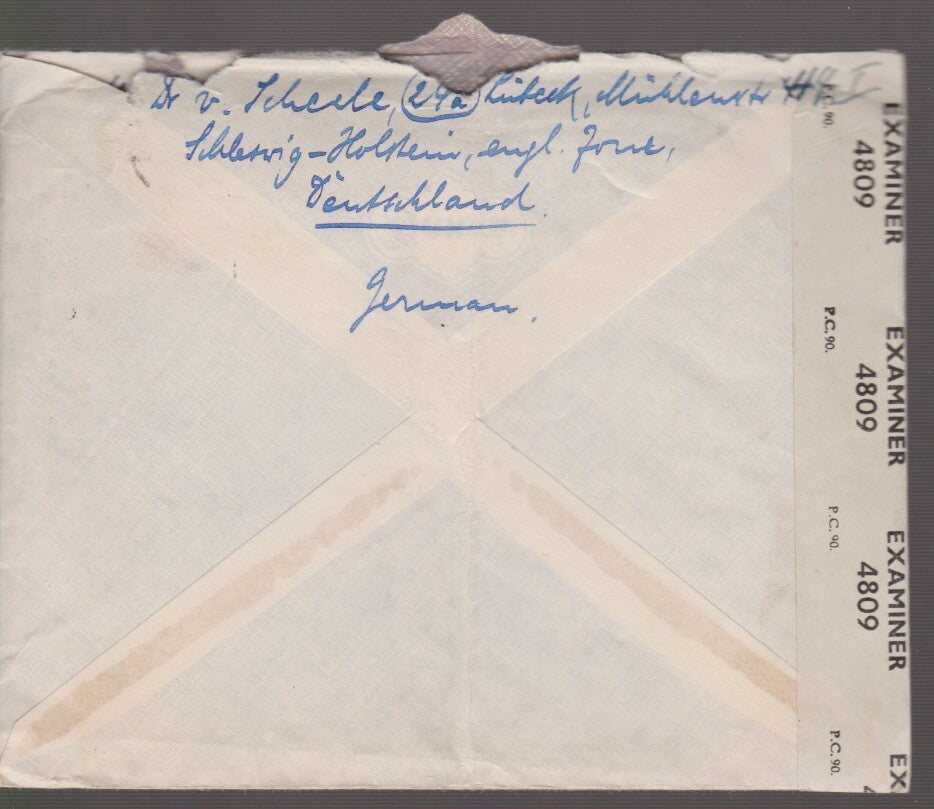 Dr v. Scheele, (24a) Lübeck, Mühlenstr
Schleswig-Holstein, engl. Zone,
Deutschland
German.
P.C. 90.
EXAMINER
4809
P.C. 90.
EXAMINER
4809
P.C. 90.
EXAMINER
4809
P.C. 90.
EX
4